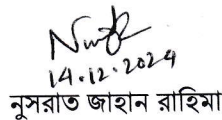 14.12.2024
নুসরাত জাহান রাহিমা